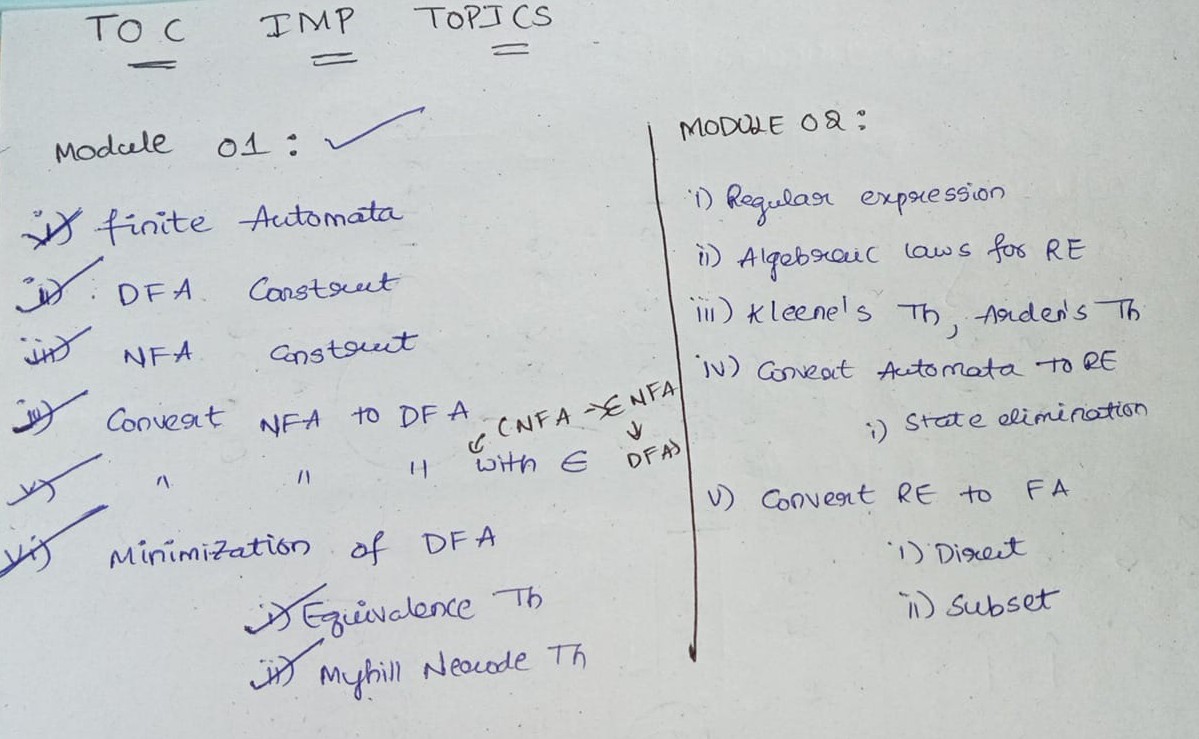 TOC IMP TOPICS
Module 01: ✓
i) finite Automata
ii) DFA Construct
iii) NFA Construct
iv) Convert NFA to DFA
v) " " " with ∈ (NFA → ∈NFA ↓ DFA)
vi) Minimization of DFA
i) Equivalence Th
ii) Myhill Nerode Th
MODULE 02:
i) Regular expression
ii) Algebraic laws for RE
iii) Kleene's Th, Arden's Th
iv) Convert Automata to RE
i) State elimination
v) Convert RE to FA
i) Direct
ii) Subset